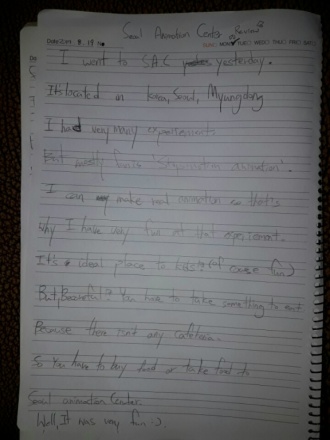 Seoul Animation Center Review
I went to SAC yesterday.
It's located in Korea, Seoul, Myungdong
I had very many experiements
But mostly funis 'Stopmotion animation'.
I can make real animation so thats
why I have very fun at that experiement.
It's ideal place to kids!! (of cause fun)
But, Be careful! You have to take something to eat
Because there isn't any cafeteria.
So You have to buy food or take food to
Seoul animation Center.
Well, It was very fun :-).